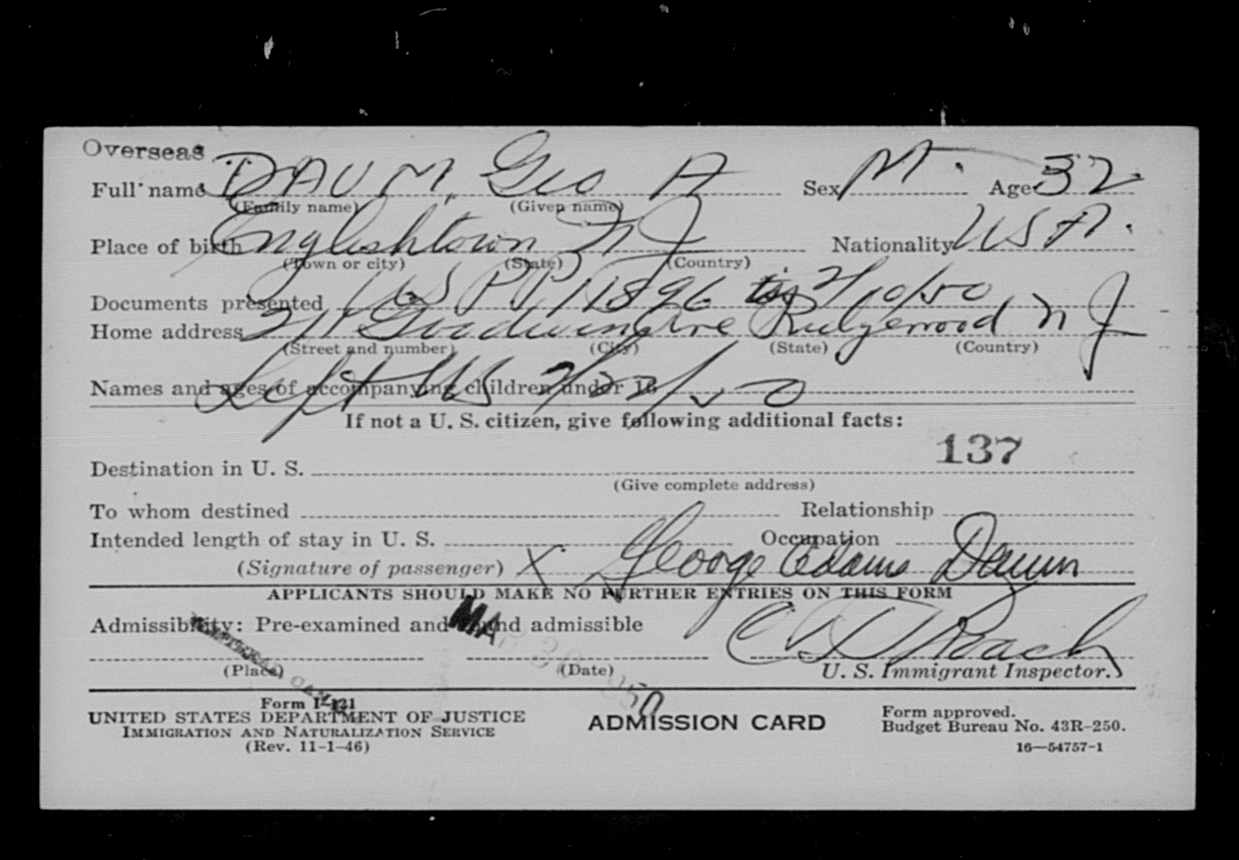 Overseas
Full name DAUM, Geo A Sex M. Age 32
(Family name) (Given name)
Place of birth Englishtown N J Nationality USA.
(Town or city) (State) (Country)
Documents presented US PP 11896 2/10/50
Home address 211 Goodwin Ave Ridgewood N J
(Street and number) (City) (State) (Country)
Names and ages of accompanying children under 16 Left US 2/22/50
If not a U. S. citizen, give following additional facts:
137
Destination in U. S.
(Give complete address)
To whom destined Relationship
Intended length of stay in U. S. Occupation
(Signature of passenger) X George Adams Daum
APPLICANTS SHOULD MAKE NO FURTHER ENTRIES ON THIS FORM
Admissibility: Pre-examined and found admissible
MAR 30 1950
(Place) (Date) U. S. Immigrant Inspector.
Form I-421
UNITED STATES DEPARTMENT OF JUSTICE
IMMIGRATION AND NATURALIZATION SERVICE
(Rev. 11-1-46)
ADMISSION CARD
Form approved.
Budget Bureau No. 43R-250.
16—54757-1